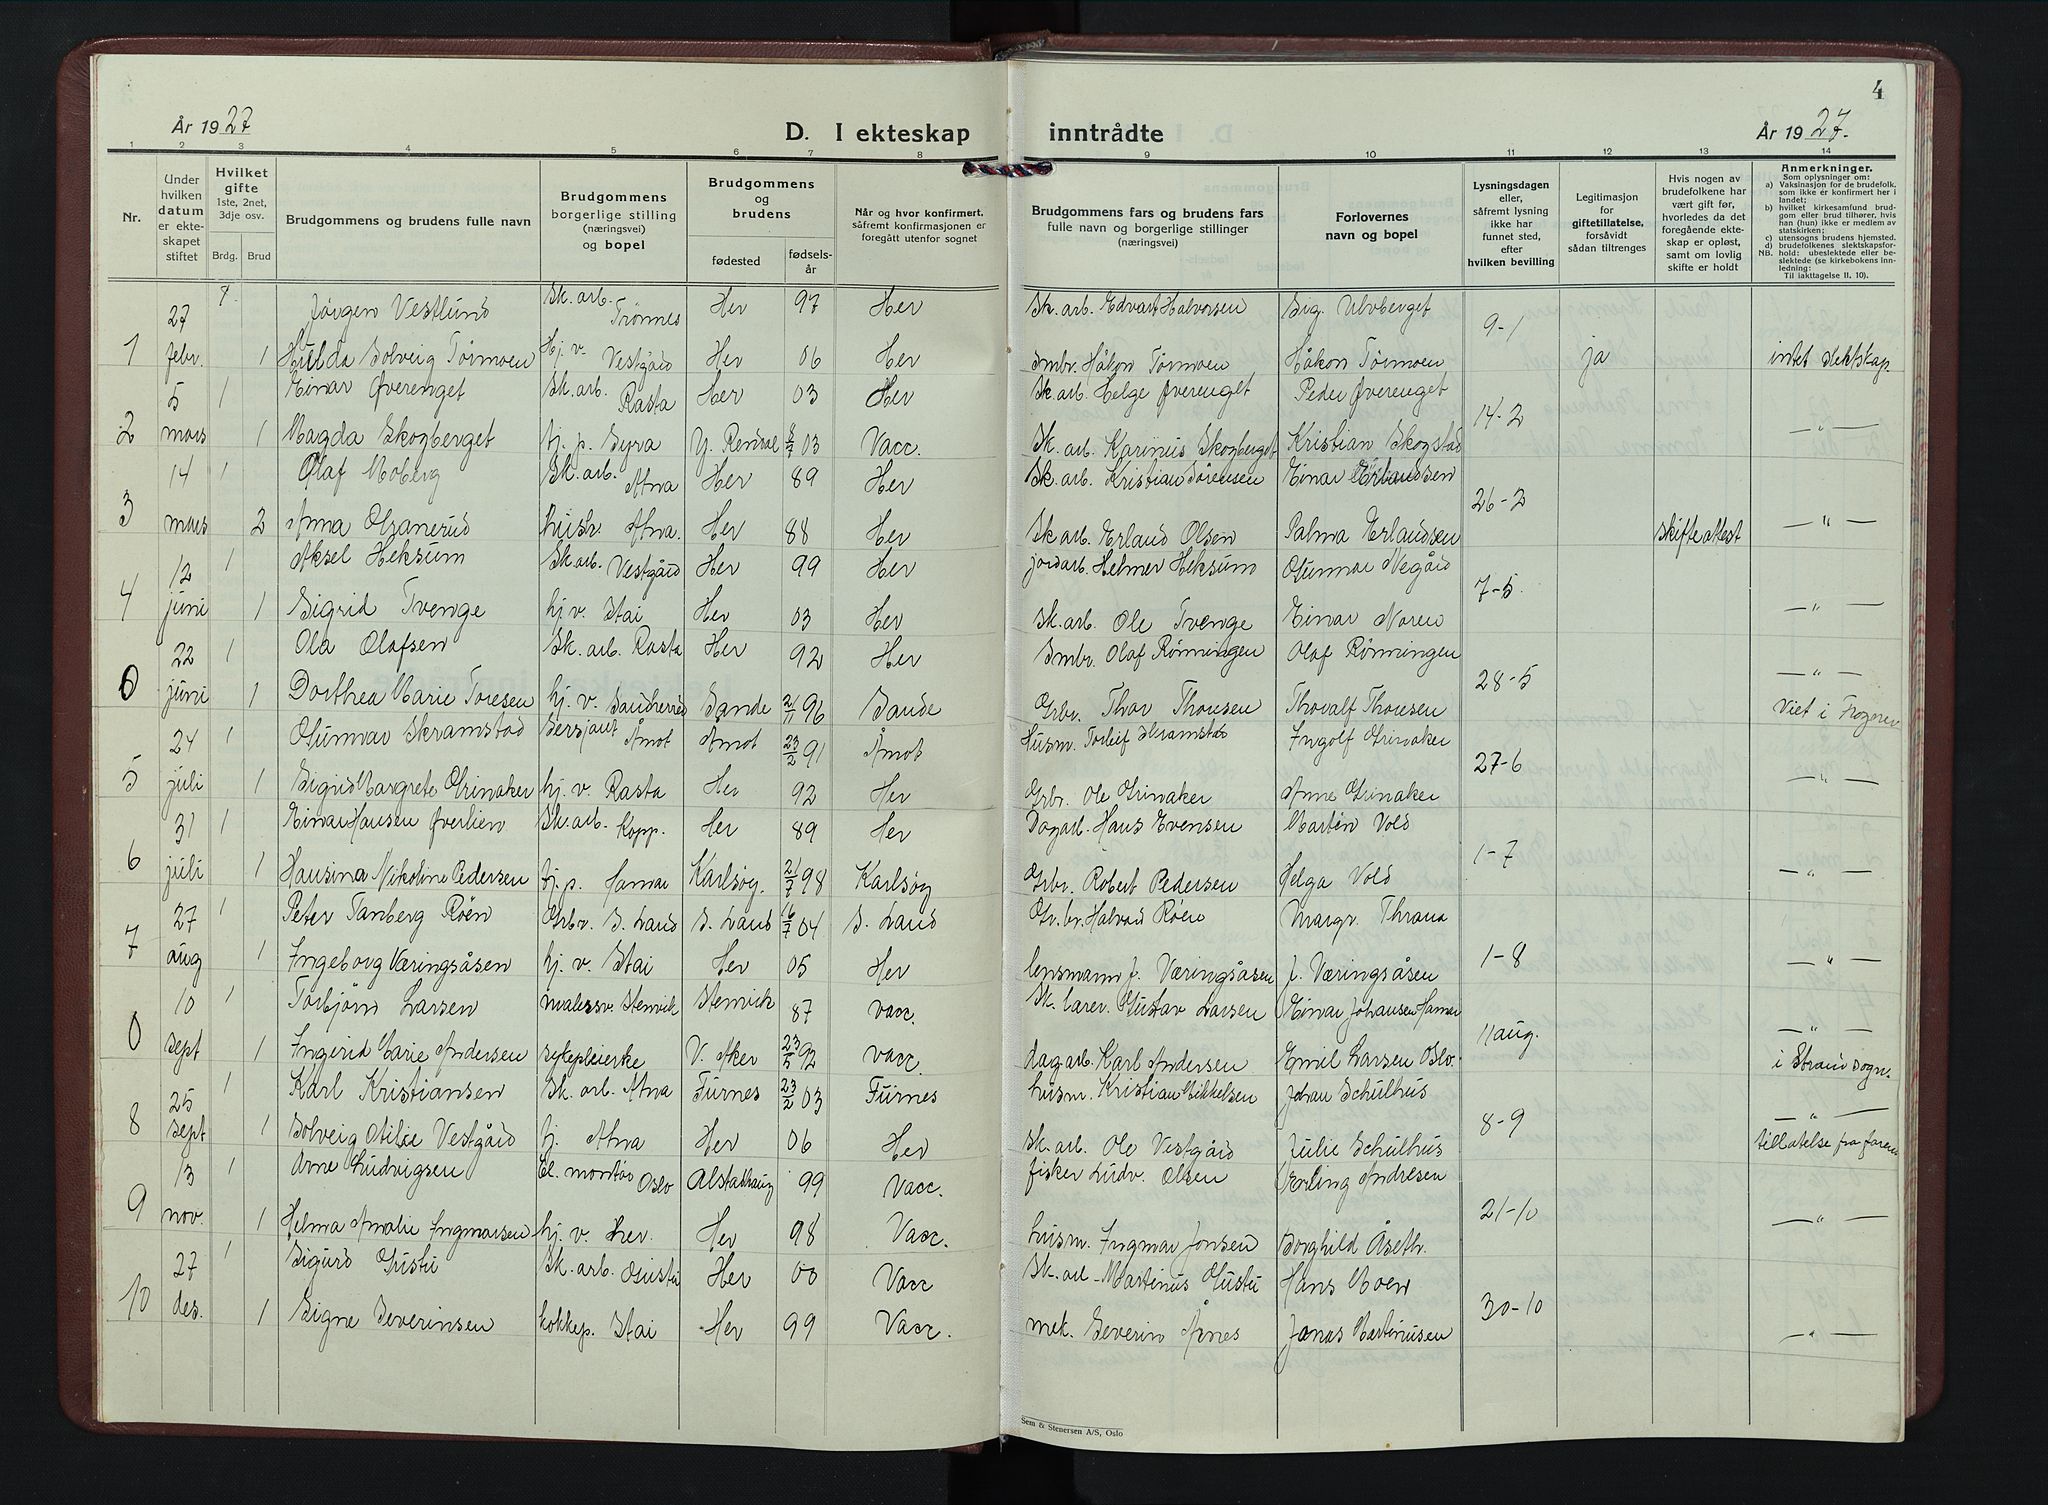 4
År 1927
D. I ekteskap inntrådte
År 1927.
1 2 3 4 5 6 7 8 9 10 11 12 13 14
Nr.
Under hvilken datum er ekteskapet stiftet
Hvilket gifte 1ste, 2net, 3dje osv.
Brdg. Brud
Brudgommens og brudens fulle navn
Brudgommens borgerlige stilling (næringsvei) og bopel
Brudgommens og brudens
fødested
fødselsår
Når og hvor konfirmert, såfremt konfirmasjonen er foregått utenfor sognet
Brudgommens fars og brudens fars fulle navn og borgerlige stillinger (næringsvei)
Forlovernes navn og bopel
Lysningsdagen eller, såfremt lysning ikke har funnet sted, efter hvilken bevilling
Legitimasjon for giftetillatelse, forsåvidt sådan tiltrenges
Hvis nogen av brudefolkene har vært gift før, hvorledes da det foregående ekteskap er opløst, samt om lovlig skifte er holdt
Anmerkninger.
Som oplysninger om:
a) Vaksinasjon for de brudefolk. som ikke er konfirmert her i landet;
b) hvilket kirkesamfund brudgom eller brud tilhører, hvis han (hun) ikke er medlem av statskirken;
c) utensogns brudens hjemsted.
d) brudefolkenes slektskapsforhold: ubeslektede eller beslektede (se kirkebokens innledning:
NB. Til iakttagelse II, 10).
27 Jørgen Vestlund Sk. arb. Trønnes Her 97 Her Sk. arb. Edvart Halvorsen Sig. Ulvberget
1 febr. 1 Hulda Solveig Tørmoen Hj. v. Vestgård Her 06 Her Smbr. Håkon Tørmoen Håkon Tørmoen 9-1 ja intet slektskap
5 1 Einar Øverenget Sk. arb. Rasta Her 03 Her Sk. arb. Helge Øverenget Peder Øverenget
2 mars 1 Magda Skogberget tj. p. Syva Y. Rendal 03 Vacc. Sk. arb. Karinus Skogberget Kristian Skogstad 14-2 — " —
14 1 Olaf Moberg Sk. arb. Atna Her 89 Her Sk. arb. Kristian Sørensen Einar Erlandsen
3 mars 2 Anna Granerud husb. Atna. Her 88 Her Sk arb. Erland Olsen Palma Erlandsen 26-2 skifteattest — " —
12 1 Aksel Heksum Sk arb. Vestgård Her 99 Her jordarb. Helmer Heksum Gunnar Vegård
4 juni 1 Sigrid Tvenge hj. v. Stai Her 03 Her Sk. arb. Ole Tvenge Einar Noren 7-5. — " —
22 1 Ola Olafsen Sk. arb. Rasta Her 92 Her Smbr. Olaf Rønningen Olaf Rønningen
0 juni 1 Dorthea Marie Toresen hj. v. Sande 21/11 96 Sande Grbr. Thor Thoresen Thorvalf Thoresen 28-5 — " —
Viet i Frogner
24 Gunnar Skramstad Sersjant Åmot Åmot 23/2 91 Åmot Husm. Torleif Skramstad Ingolf Grinaker
5 juli 1 Sigrid Margrete Grinaker hj. v. Rasta Her 92 Her Grbr. Ole Grinaker Anne Grinaker 27-6 — " —
31 1 Einar Hansen Øverlien Sk. arb. Kopp. Her 89 Her Dagarb. Hans Evensen Martin Vold
6 juli 1 Hansina Nikoline Pedersen tj. p. Hamar Karlsøy. 21/7 98 Karlsøy Grbr. Robert Pedersen Helga Vold 1-7 — " —
27 1 Peter Tanberg Røen Grbr. S. Land S. Land 16/7 04 S. Land Gr. br. Halvard Røen Margr. Thrana
7 aug 1 Ingeborg Væringsåsen hj. v. Stai Her 05 Her lensmann J. Væringsåsen J. Væringsåsen 1-8 — " —
10 1 Torbjørn Larsen malersv. Stenvik Stenvik 87 vacc. Sk. lærer. Gustav Larsen Einar Johansen Hamar
0 sept 1 Ingerid Marie Andersen sykepleierske V. Aker 23/5 92 vacc. dagarb. Karl Andersen Emil Larsen Oslo. 11 aug. — " —
i Strand sogn.
25 1 Karl Kristiansen Sk. arb. Atna Furnes 23/2 03 Furnes husm. Kristian Mikkelsen Johan Schulhus
8 sept 1 Solveig Otilie Vestgård tj. Atna Her 06 Her Sk. arb. Ole Vestgård Julie Schulhus 8-9 — " —
tillatelse fra faren
13 1 Arne Ludvigsen El. montør Oslo Alstadhaug 99 Vacc. fisker Ludv. Olsen Erling Andresen
9 nov. 1 Helma Amalie Ingmarsen hj. v. her. Her 98 Vacc. husm. Ingmar Jonsen Borghild Åseth. 21-10 — " —
27 1 Sigurd Gustu Sk. arb. Gustu Her 00 Vacc Sk. arb. Martinus Gustu Hans Moen
10 des. 1 Signe Severinsen kokkep. Stai Her 99 Vacc. mek. Severin Årnes Jonas Martinusen 30-10 — " —
Sem & Stenersen A/S, Oslo